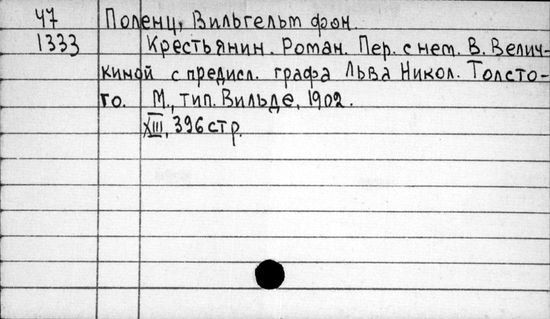 47 Поленц, Вильгельм фон.
1333 Крестьянин. Роман. Пер. с нем. В. Велич-
киной с предисл. графа Льва Никол. Толсто-
го. М., тип. Вильде, 1902.
XIII, 396 стр.